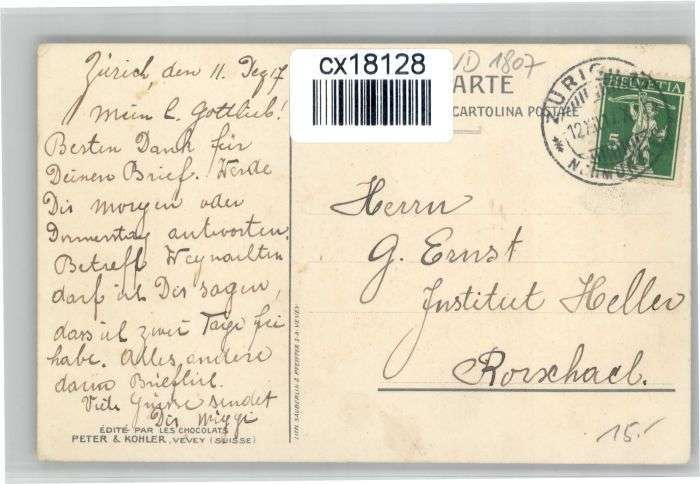 Zürich, den 11. Dez 17
Mein l. Gottlieb!
Besten Dank für
Deinen Brief. Werde
Dir morgen oder
Donnerstag antworten.
Betreff Weynachten
darf ich Dir sagen,
dass ich zwei Tage frei
habe. Alles andere
dann Brieflich.
Viele Grüsse sendet
Dir Miggi
EDITÉ PAR LES CHOCOLATS
PETER & KOHLER, VEVEY (SUISSE)
LITH. SAUBERLIN & PFEIFFER S.A. VEVEY
cx18128
VD 1807
ARTE
CARTOLINA POSTALE
ZÜRICH
12.XII
HELVETIA
5
Herrn
G. Ernst
Institut Heller
Rorschach.
15.-